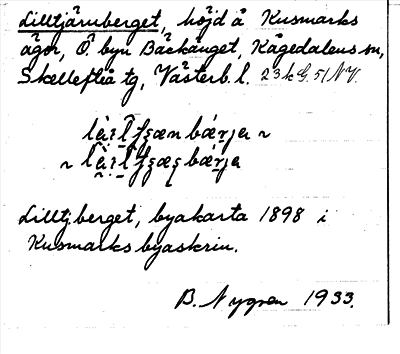 Lilltjärnberget, höjd å Kusmarks
ägor, Ö byn Bäckänget, Kågedalens sn,
Skellefteå tg, Västerb. l. 23 k G. 51 NV.
Lilltj.berget, byakarta 1898 i
Kusmarks byaskrin.
B. Nygren 1933.